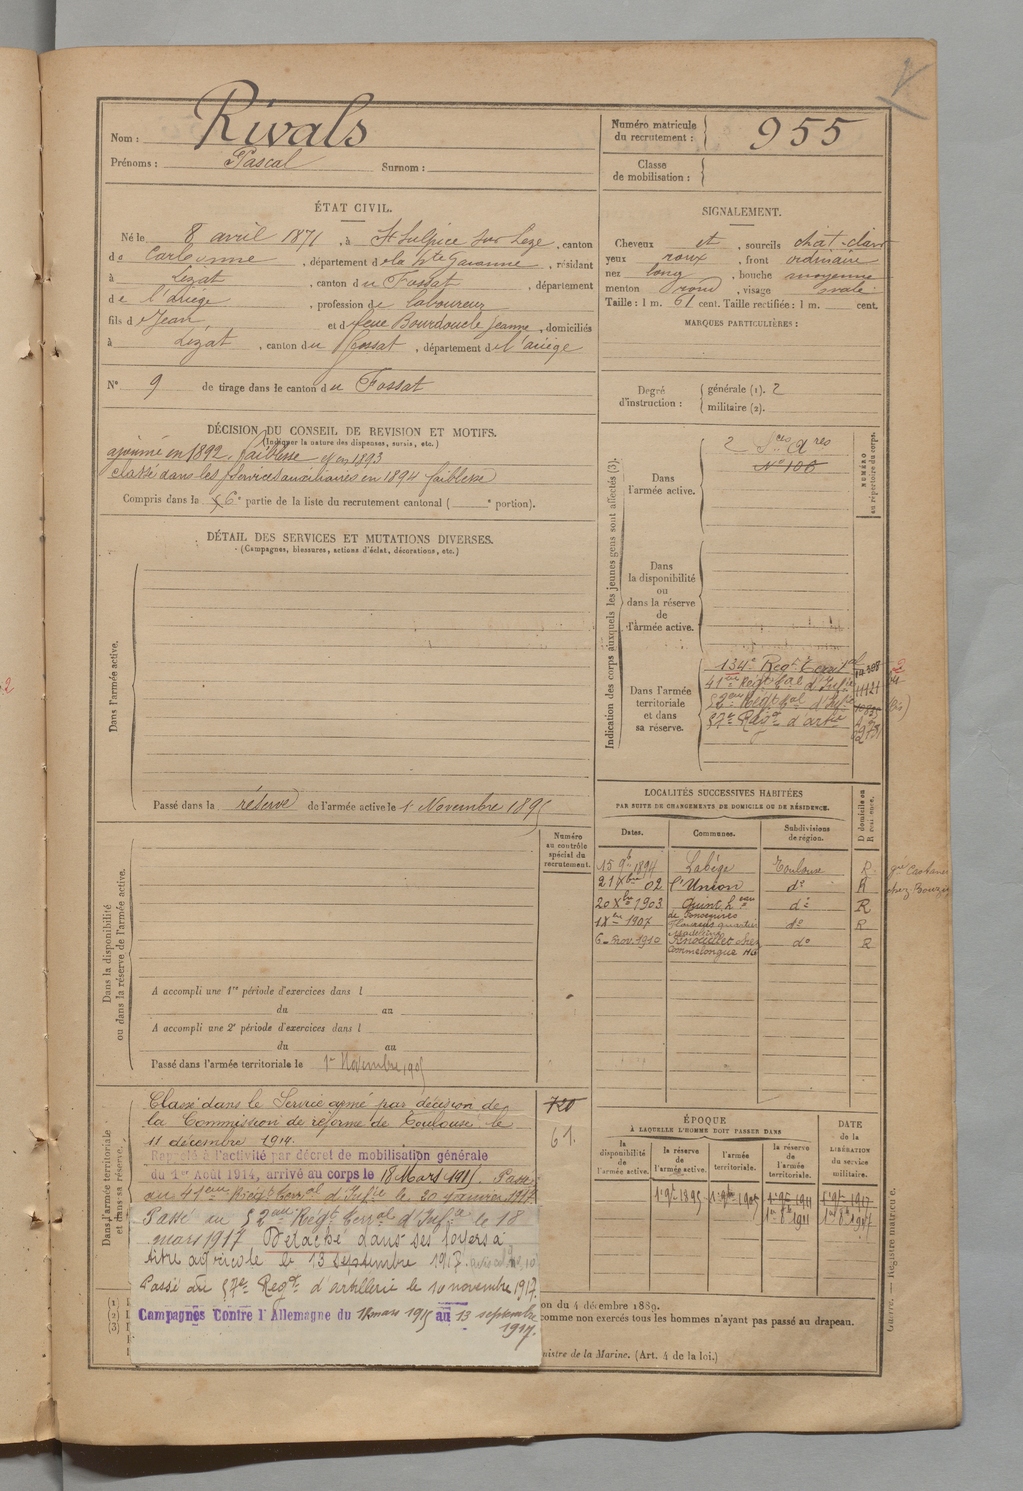 Nom : Rivals
Prénoms : Pascal Surnom :
Numéro matricule du recrutement : 955
Classe de mobilisation :
ÉTAT CIVIL.
Né le 8 avril 1871, à St Sulpice sur Lèze, canton
de Carbonne, département de la Hte Garonne, résidant
à Lézat, canton du Fossat, département
de l'Ariège, profession de laboureur
fils de Jean et de feue Bourdoucle Jeanne, domiciliés
à Lézat, canton du Fossat, département de l'Ariège
N° 9 de tirage dans le canton du Fossat
DÉCISION DU CONSEIL DE REVISION ET MOTIFS.
(Indiquer la nature des dispenses, sursis, etc.)
ajourné en 1892, faiblesse et en 1893
classé dans les Services auxiliaires en 1894 faiblesse
Compris dans la 6e partie de la liste du recrutement cantonal ( e portion).
DÉTAIL DES SERVICES ET MUTATIONS DIVERSES.
(Campagnes, blessures, actions d'éclat, décorations, etc.)
Dans l'armée active.
Passé dans la réserve de l'armée active le 1 Novembre 1895
Numéro au contrôle spécial du recrutement.
Dans la disponibilité ou dans la réserve de l'armée active.
A accompli une 1re période d'exercices dans l
du au
A accompli une 2e période d'exercices dans l
du au
Passé dans l'armée territoriale le 1er Novembre 1905
Dans l'armée territoriale et dans sa réserve.
Classé dans le Service armé par décision de
la Commission de réforme de Toulouse le
11 décembre 1914.
Rappelé à l'activité par décret de mobilisation générale
du 1er Août 1914, arrivé au corps le 18 Mars 1915. Passé
au 41eme Régt Terral d'Infie le 20 janvier 1917
Passé au 52eme Régt Terral d'Infie le 18
mars 1917 Détaché dans ses foyers à
titre agricole le 13 septembre 1917.
Passé au 57e Regt d'artillerie le 10 novembre 1917.
Campagnes Contre l'Allemagne du 18 mars 1915 au 13 septembre
1917.
720
61.
SIGNALEMENT.
Cheveux et, sourcils chat-clair
yeux roux, front ordinaire
nez long, bouche moyenne
menton rond, visage ovale
Taille : 1 m. 61 cent. Taille rectifiée : 1 m. cent.
MARQUES PARTICULIÈRES :
Degré d'instruction : générale (1). 2
militaire (2).
Indication des corps auxquels les jeunes gens sont affectés (3).
NUMÉRO au répertoire du corps.
Dans l'armée active.
Sces Ares
N° 100
Dans la disponibilité ou dans la réserve de l'armée active.
Dans l'armée territoriale et dans sa réserve.
134e Regt Territal
41eme Régt tal d'Infie 11121
52eme Régt tal d'Infie
57e Régt d'artie
LOCALITÉS SUCCESSIVES HABITÉES
PAR SUITE DE CHANGEMENTS DE DOMICILE OU DE RÉSIDENCE.
Dates. Communes. Subdivisions de région. D domicile ou R résidence.
15 9b 1894 Labège Toulouse R
21 Xbre 02 l'Union do R
20 Xbre 1903 Quint do R
1 Xbre 1907 Flourens quartier do R
6 Nov. 1910 do R
ÉPOQUE
À LAQUELLE L'HOMME DOIT PASSER DANS
la disponibilité de l'armée active. la réserve de l'armée active. l'armée territoriale. la réserve de l'armée territoriale.
DATE de la LIBÉRATION du service militaire.
1 9b 1895 1 9bre 1905 1 9b 1911 1 9b 1917
1er 8b 1911 1er 8b 1917
on du 4 décembre 1889.
comme non exercés tous les hommes n'ayant pas passé au drapeau.
nistre de la Marine. (Art. 4 de la loi.)
Guerre. — Registre matricule.